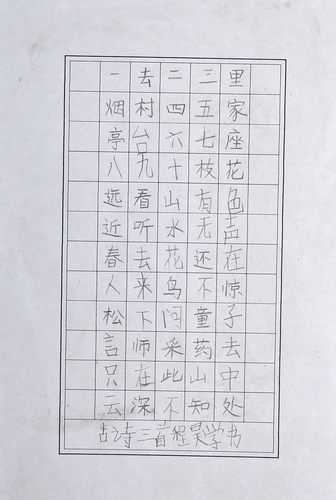 一去二三里
烟村四五家
亭台六七座
八九十枝花
远看山有色
近听水无声
春去花还在
人来鸟不惊
松下问童子
言师采药去
只在此山中
云深不知处
古诗三首程昊学书